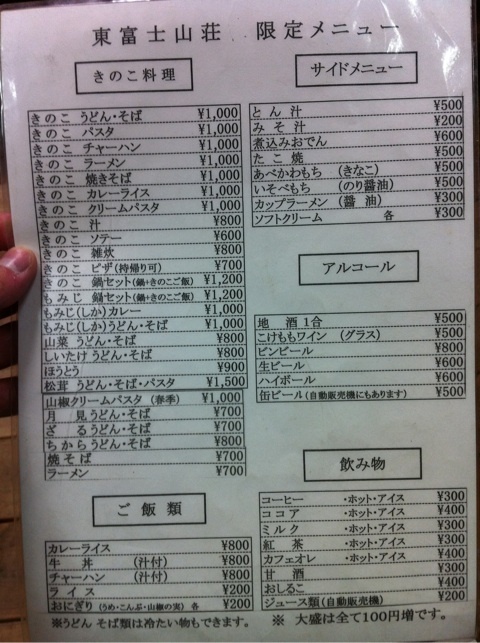 東富士山荘 限定メニュー
きのこ料理
きのこ うどん・そば ¥1,000
きのこ パスタ ¥1,000
きのこ チャーハン ¥1,000
きのこ ラーメン ¥1,000
きのこ 焼きそば ¥1,000
きのこ カレーライス ¥1,000
きのこ クリームパスタ ¥1,000
きのこ 汁 ¥800
きのこ ソテー ¥600
きのこ 雑炊 ¥800
きのこ ピザ(持帰り可) ¥700
きのこ 鍋セット(鍋+きのこご飯) ¥1,200
もみじ 鍋セット(鍋+きのこご飯) ¥1,200
もみじ(しか)カレー ¥1,000
もみじ(しか)うどん・そば ¥1,000
山菜 うどん・そば ¥800
しいたけ うどん・そば ¥800
ほうとう ¥900
松茸 うどん・そば・パスタ ¥1,500
山椒クリームパスタ (春季) ¥1,000
月 見 うどん・そば ¥700
ざ る うどん・そば ¥700
ちから うどん・そば ¥800
焼そば ¥700
ラーメン ¥700
ご飯類
カレーライス ¥800
牛 丼 (汁付) ¥800
チャーハン (汁付) ¥800
ライス ¥200
おにぎり (うめ・こんぶ・山椒の実) 各 ¥200
※うどん そば類は冷たい物もできます。
サイドメニュー
とん汁 ¥500
みそ汁 ¥200
煮込みおでん ¥600
たこ焼 ¥500
あべかわもち (きなこ) ¥500
いそべもち (のり醤油) ¥500
カップラーメン (醤 油) ¥300
ソフトクリーム 各 ¥300
アルコール
地 酒 1合 ¥500
こけももワイン (グラス) ¥500
ビンビール ¥800
生ビール ¥600
ハイボール ¥500
缶ビール(自動販売機にもあります) ¥500
飲み物
コーヒー ・ホット・アイス ¥300
ココア ・ホット・アイス ¥400
ミルク ・ホット・アイス ¥300
紅 茶 ・ホット・アイス ¥300
カフェオレ ・ホット・アイス ¥400
甘 酒 ¥300
おしるこ ¥400
ジュース類(自動販売機) ¥200
※ 大盛は全て100円増です。